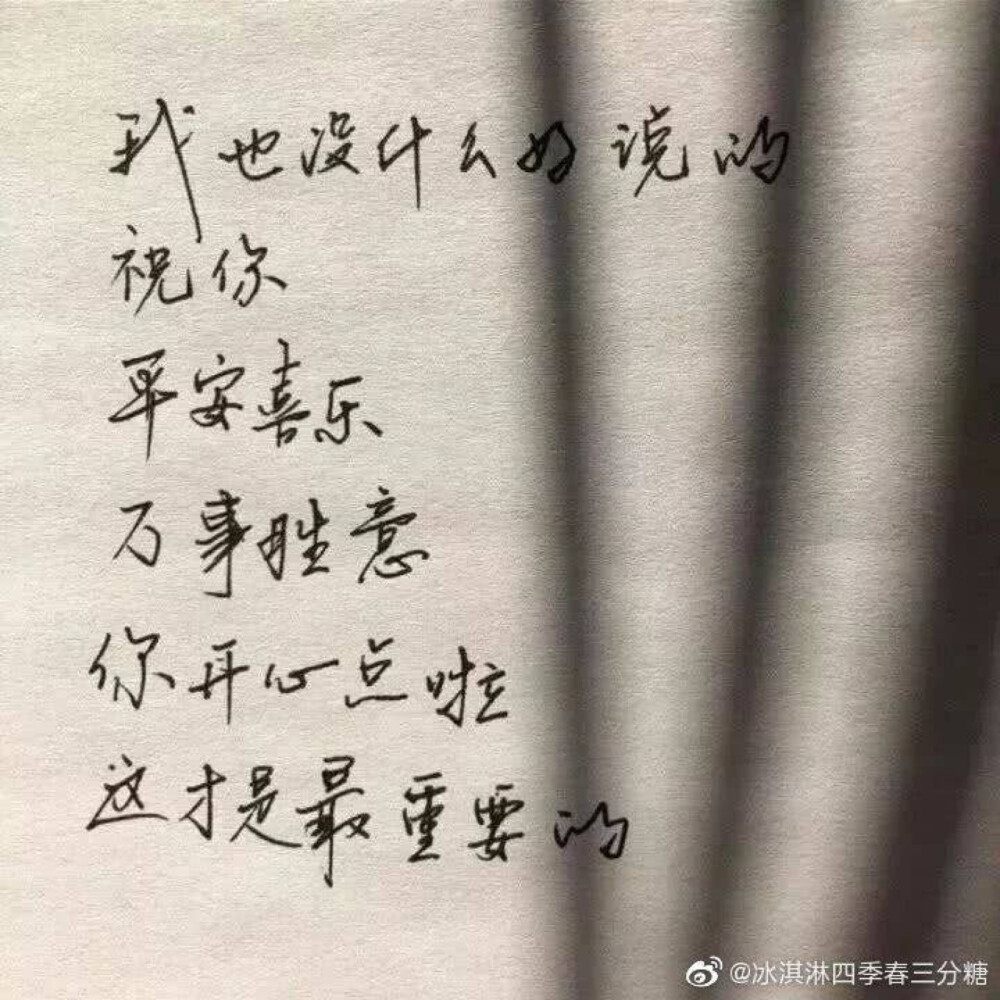 我也没什么好说的
祝你
平安喜乐
万事胜意
你开心点啦
这才是最重要的
@冰淇淋四季春三分糖